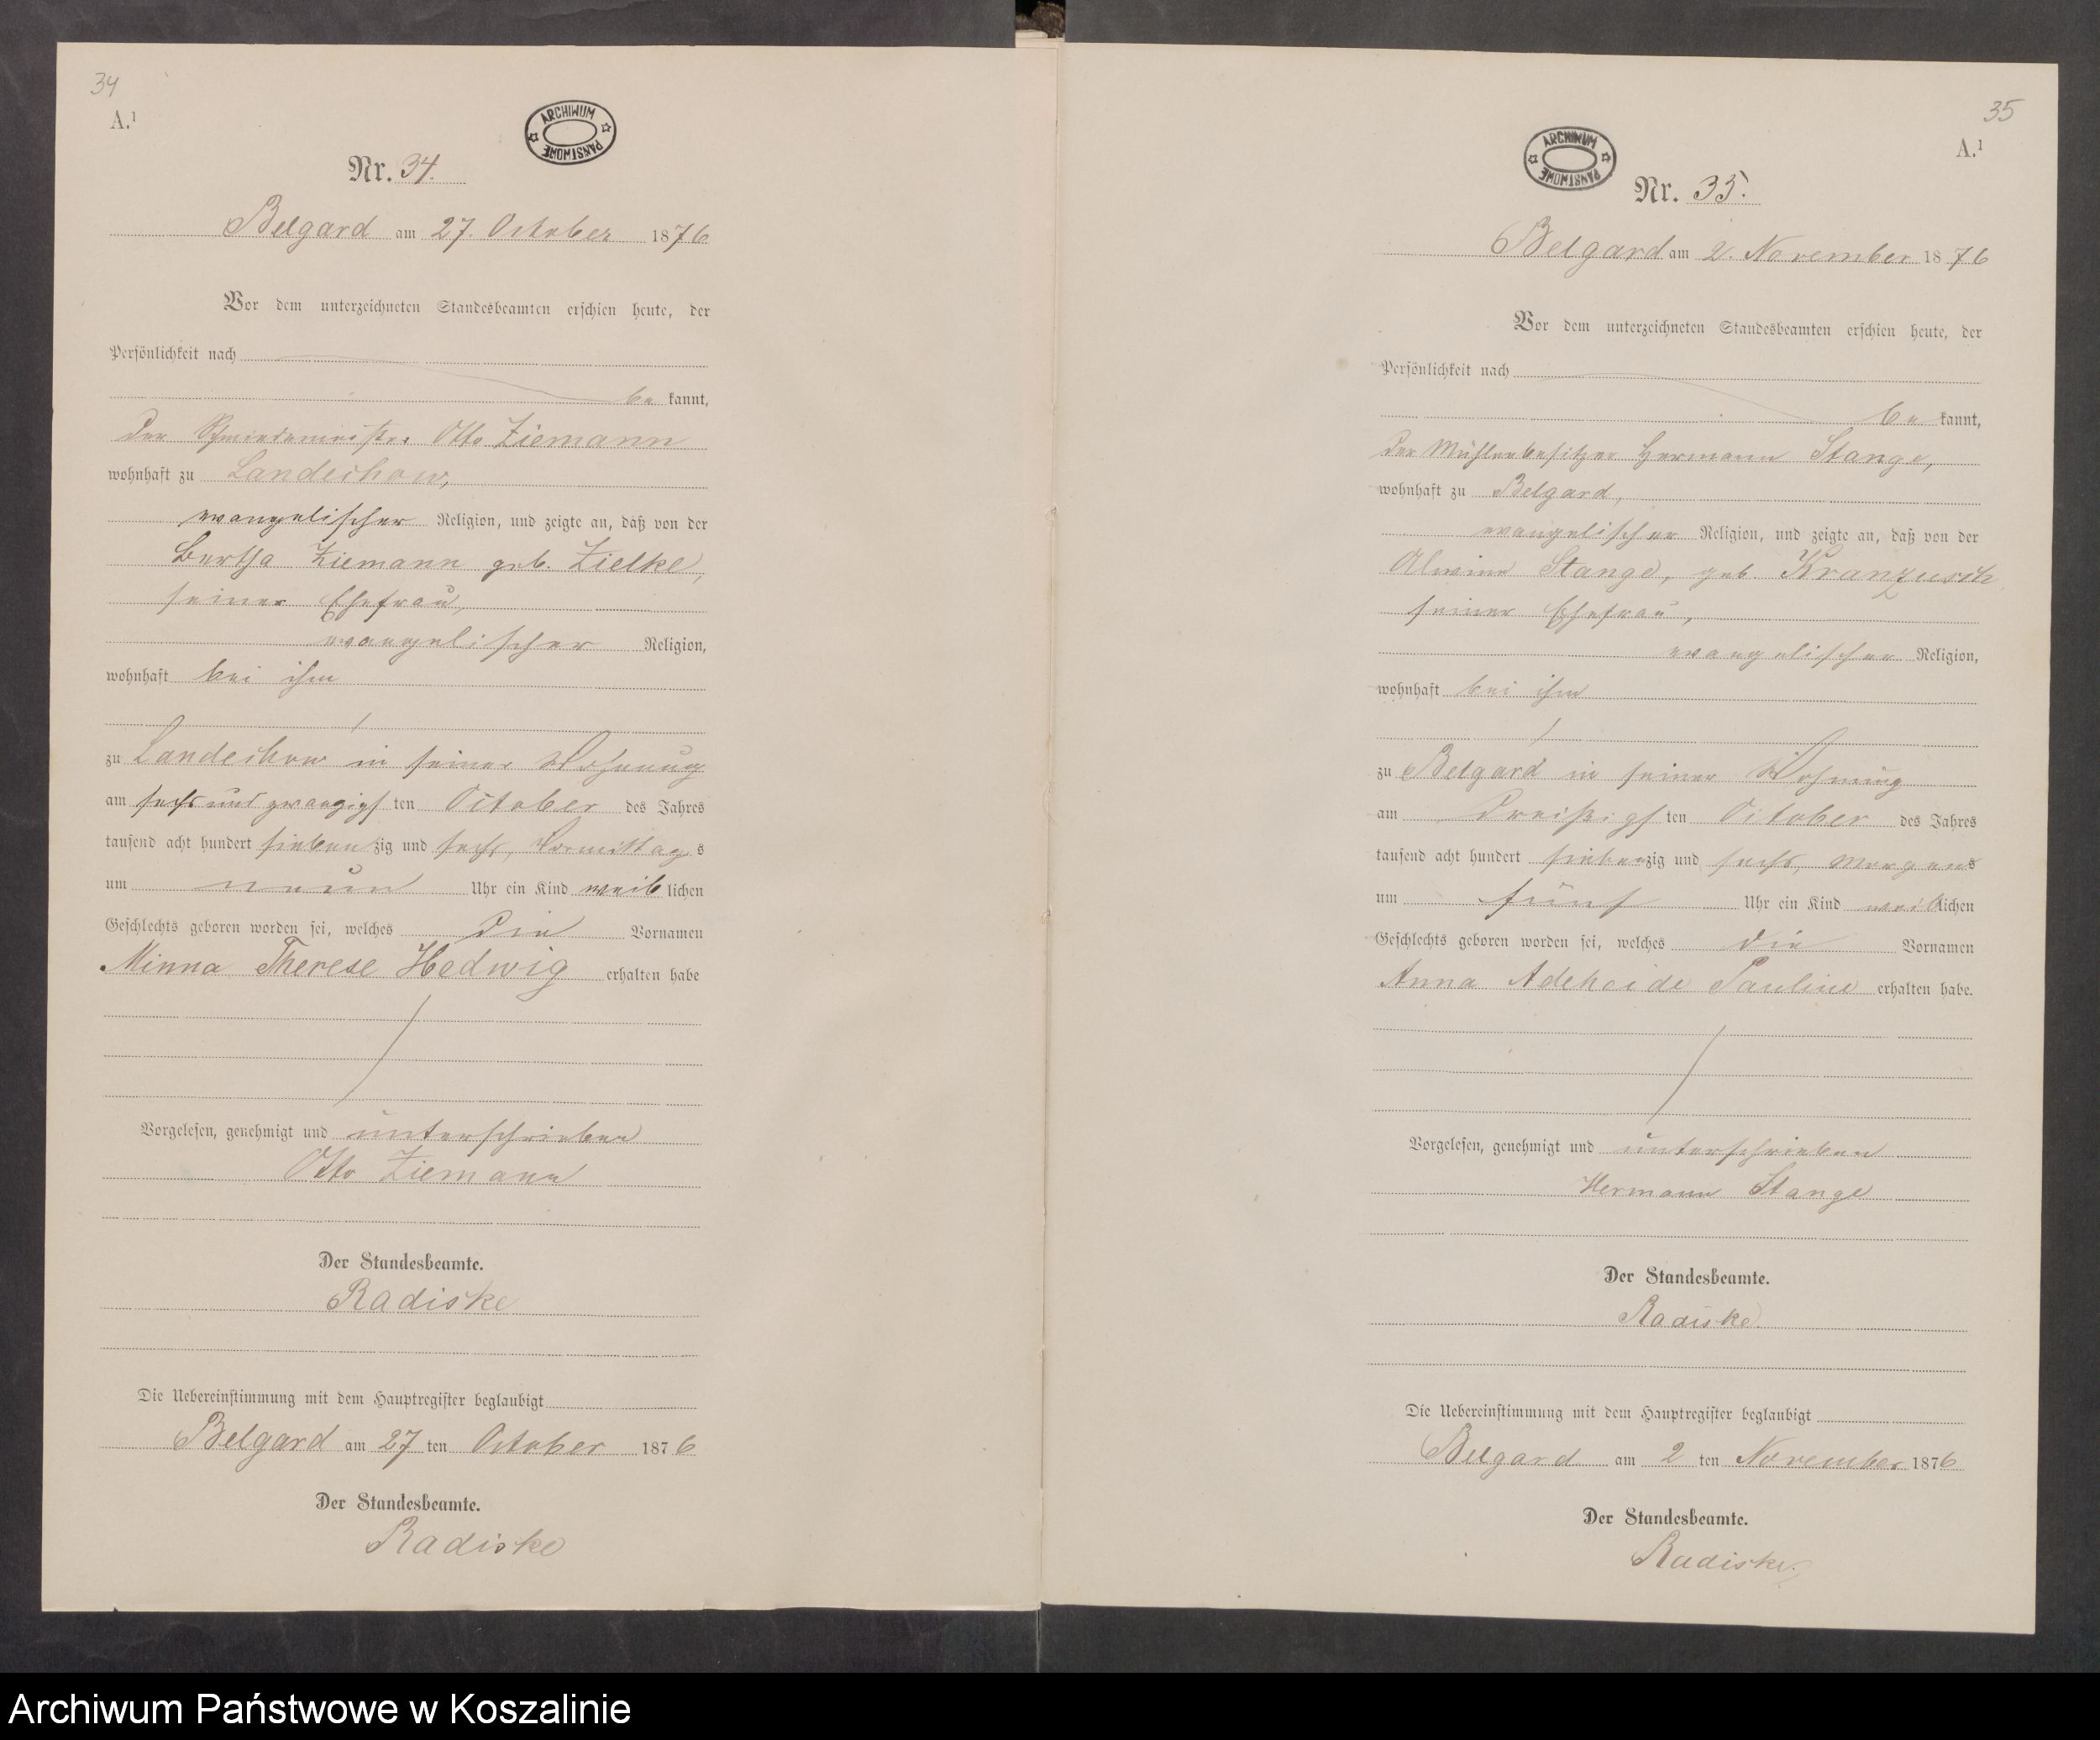 34
A.¹
ARCHIWUM PAŃSTWOWE
Nr. 34.
Belgard am 27. October 1876
Vor dem unterzeichneten Standesbeamten erschien heute, der
Persönlichkeit nach
be kannt,
der Schmiedemeister Otto Ziemann
wohnhaft zu Landechow,
evangelischer Religion, und zeigte an, daß von der
Bertha Ziemann geb. Zielke,
seiner Ehefrau,
evangelischer Religion,
wohnhaft bei ihm
zu Landechow in seiner Wohnung
am sechs und zwanzigs ten October des Jahres
tausend acht hundert siebenzig und sechs, Vormittag s
um neun Uhr ein Kind weib lichen
Geschlechts geboren worden sei, welches die Vornamen
Minna Therese Hedwig erhalten habe
Vorgelesen, genehmigt und unterschrieben
Otto Ziemann
Der Standesbeamte.
Radiske
Die Uebereinstimmung mit dem Hauptregister beglaubigt
Belgard am 27 ten October 1876
Der Standesbeamte.
Radiske
35
A.¹
ARCHIWUM PAŃSTWOWE
Nr. 35.
Belgard am 2. November 1876
Vor dem unterzeichneten Standesbeamten erschien heute, der
Persönlichkeit nach
be kannt,
der Mühlenbesitzer Hermann Stange,
wohnhaft zu Belgard,
evangelischer Religion, und zeigte an, daß von der
Alwine Stange, geb. Kranzusch
seiner Ehefrau,
evangelischer Religion,
wohnhaft bei ihm
zu Belgard in seiner Wohnung
am dreißigs ten October des Jahres
tausend acht hundert siebenzig und sechs, Morgens
um fünf Uhr ein Kind weiblichen
Geschlechts geboren worden sei, welches die Vornamen
Anna Adeheide Pauline erhalten habe.
Vorgelesen, genehmigt und unterschrieben
Hermann Stange
Der Standesbeamte.
Radiske.
Die Uebereinstimmung mit dem Hauptregister beglaubigt
Belgard am 2 ten November 1876
Der Standesbeamte.
Radiske.
Archiwum Państwowe w Koszalinie